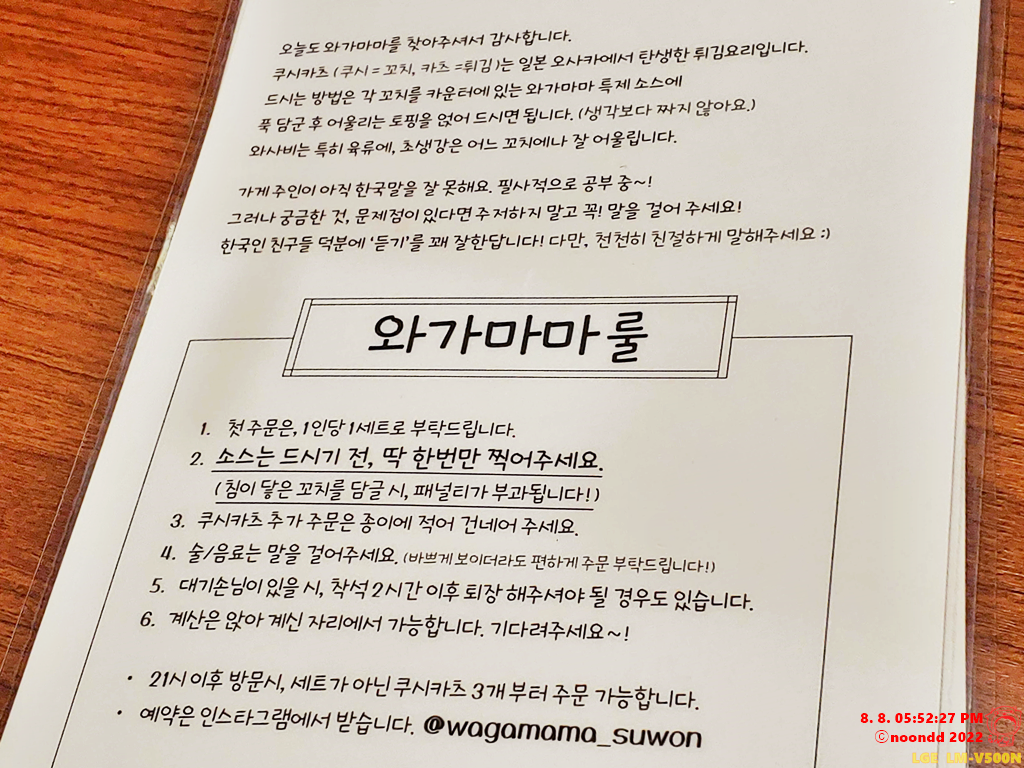 오늘도 와가마마를 찾아주셔서 감사합니다.
쿠시카츠 (쿠시 = 꼬치, 카츠 =튀김)는 일본 오사카에서 탄생한 튀김요리입니다.
드시는 방법은 각 꼬치를 카운터에 있는 와가마마 특제 소스에
푹 담군 후 어울리는 토핑을 얹어 드시면 됩니다. (생각보다 짜지 않아요.)
와사비는 특히 육류에, 초생강은 어느 꼬치에나 잘 어울립니다.
가게 주인이 아직 한국말을 잘 못해요. 필사적으로 공부 중~!
그러나 궁금한 것, 문제점이 있다면 주저하지 말고 꼭! 말을 걸어 주세요!
한국인 친구들 덕분에 '듣기'를 꽤 잘한답니다! 다만, 천천히 친절하게 말해주세요 :)
와가마마 룰
1. 첫 주문은, 1인당 1세트로 부탁드립니다.
2. 소스는 드시기 전, 딱 한번만 찍어주세요.
(침이 닿은 꼬치를 담글 시, 패널티가 부과됩니다!)
3. 쿠시카츠 추가 주문은 종이에 적어 건네어 주세요.
4. 술/음료는 말을 걸어주세요. (바쁘게 보이더라도 편하게 주문 부탁드립니다!)
5. 대기손님이 있을 시, 착석 2시간 이후 퇴장 해주셔야 될 경우도 있습니다.
6. 계산은 앉아 계신 자리에서 가능합니다. 기다려주세요~!
• 21시 이후 방문시, 세트가 아닌 쿠시카츠 3개 부터 주문 가능합니다.
• 예약은 인스타그램에서 받습니다. @wagamama_suwon
8. 8. 05:52:27 PM
ⓒnoondd 2022
LGE LM-V500N